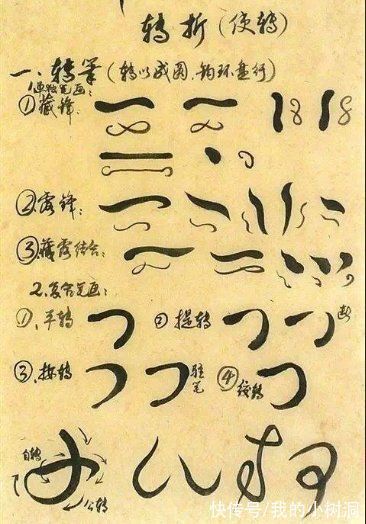 转折（使转）
一、转笔（转以成圆，钩环盘）
1.单独笔画：
①藏锋：
②露锋：
③藏露结合：
2.复合笔画：
①、平转 ②提转 断
③、按转 驻笔 ④绞转
自转
公转
快传号/我的小树洞